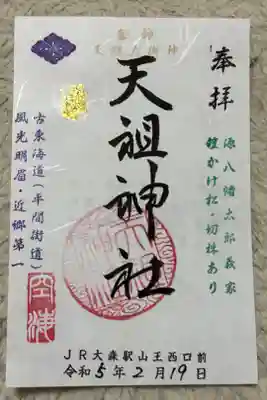 奉拝
源八幡太郎義家
鎧かけ松・切株あり
天祖神社
古東海道(平間街道)
風光明眉・近郷第一
空海
JR大森駅山王西口前
令和5年2月19日